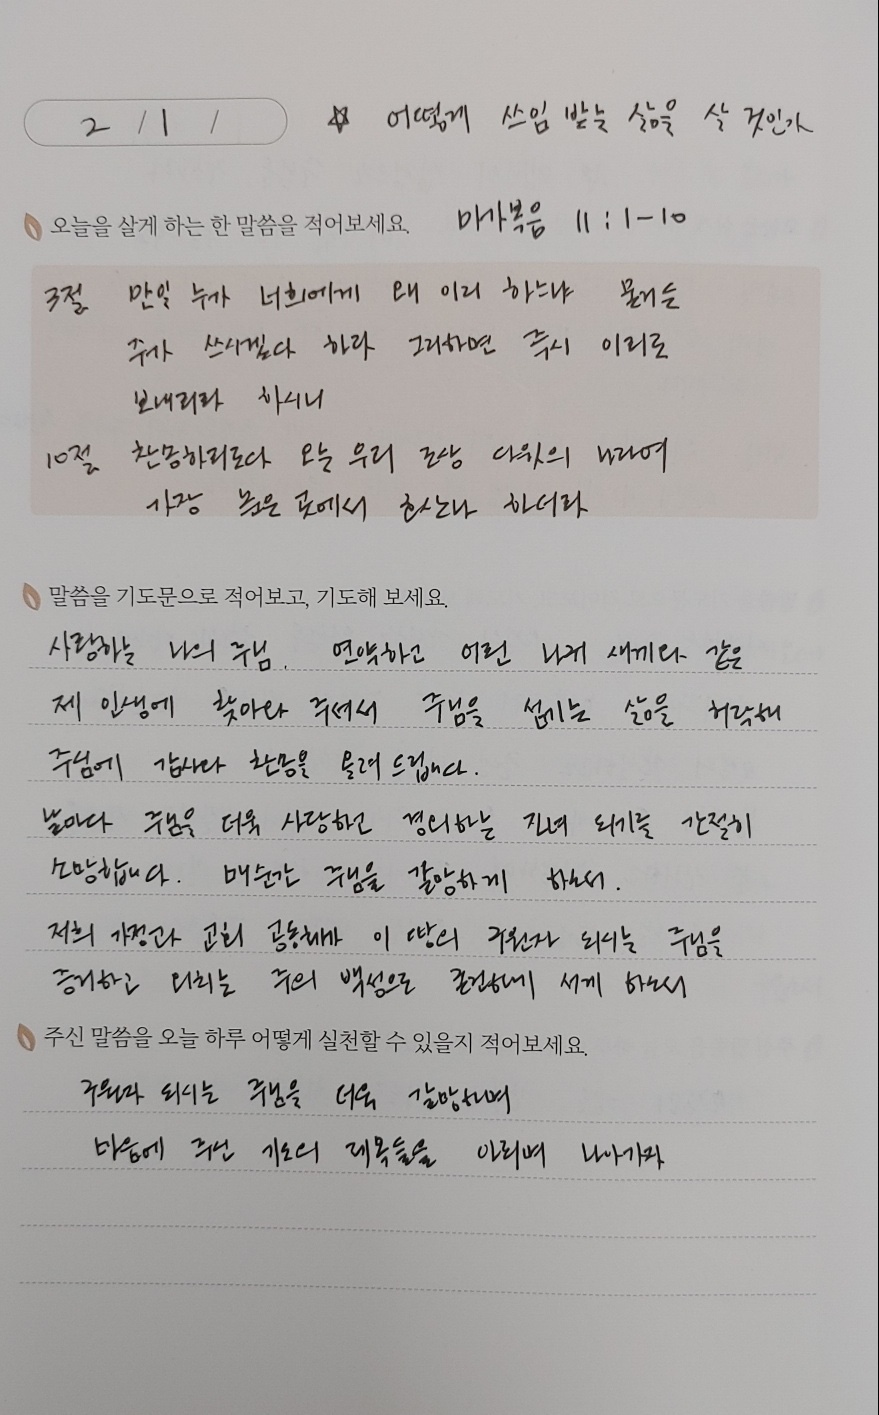 2 / 1 /
☆ 어떻게 쓰임 받는 삶을 살 것인가
오늘을 살게 하는 한 말씀을 적어보세요.
마가복음 11 : 1-10
3절 만일 누가 너희에게 왜 이리 하느냐 묻거든
주가 쓰시겠다 하라 그리하면 즉시 이리로
보내리라 하시니
10절 찬송하리로다 오는 우리 조상 다윗의 나라여
가장 높은 곳에서 호산나 하더라
말씀을 기도문으로 적어보고, 기도해 보세요.
사랑하는 나의 주님. 연약하고 어린 나귀 새끼와 같은
제 인생에 찾아와 주셔서 주님을 섬기는 삶을 허락해
주심에 감사와 찬송을 올려 드립니다.
날마다 주님을 더욱 사랑하고 경외하는 자녀 되기를 간절히
소망합니다. 매순간 주님을 갈망하게 하소서.
저희 가정과 교회 공동체가 이 땅의 구원자 되시는 주님을
증거하고 외치는 주의 백성으로 온전하게 서게 하소서
주신 말씀을 오늘 하루 어떻게 실천할 수 있을지 적어보세요.
구원자 되시는 주님을 더욱 갈망하며
마음에 주신 기도의 제목들을 아뢰며 나아가자